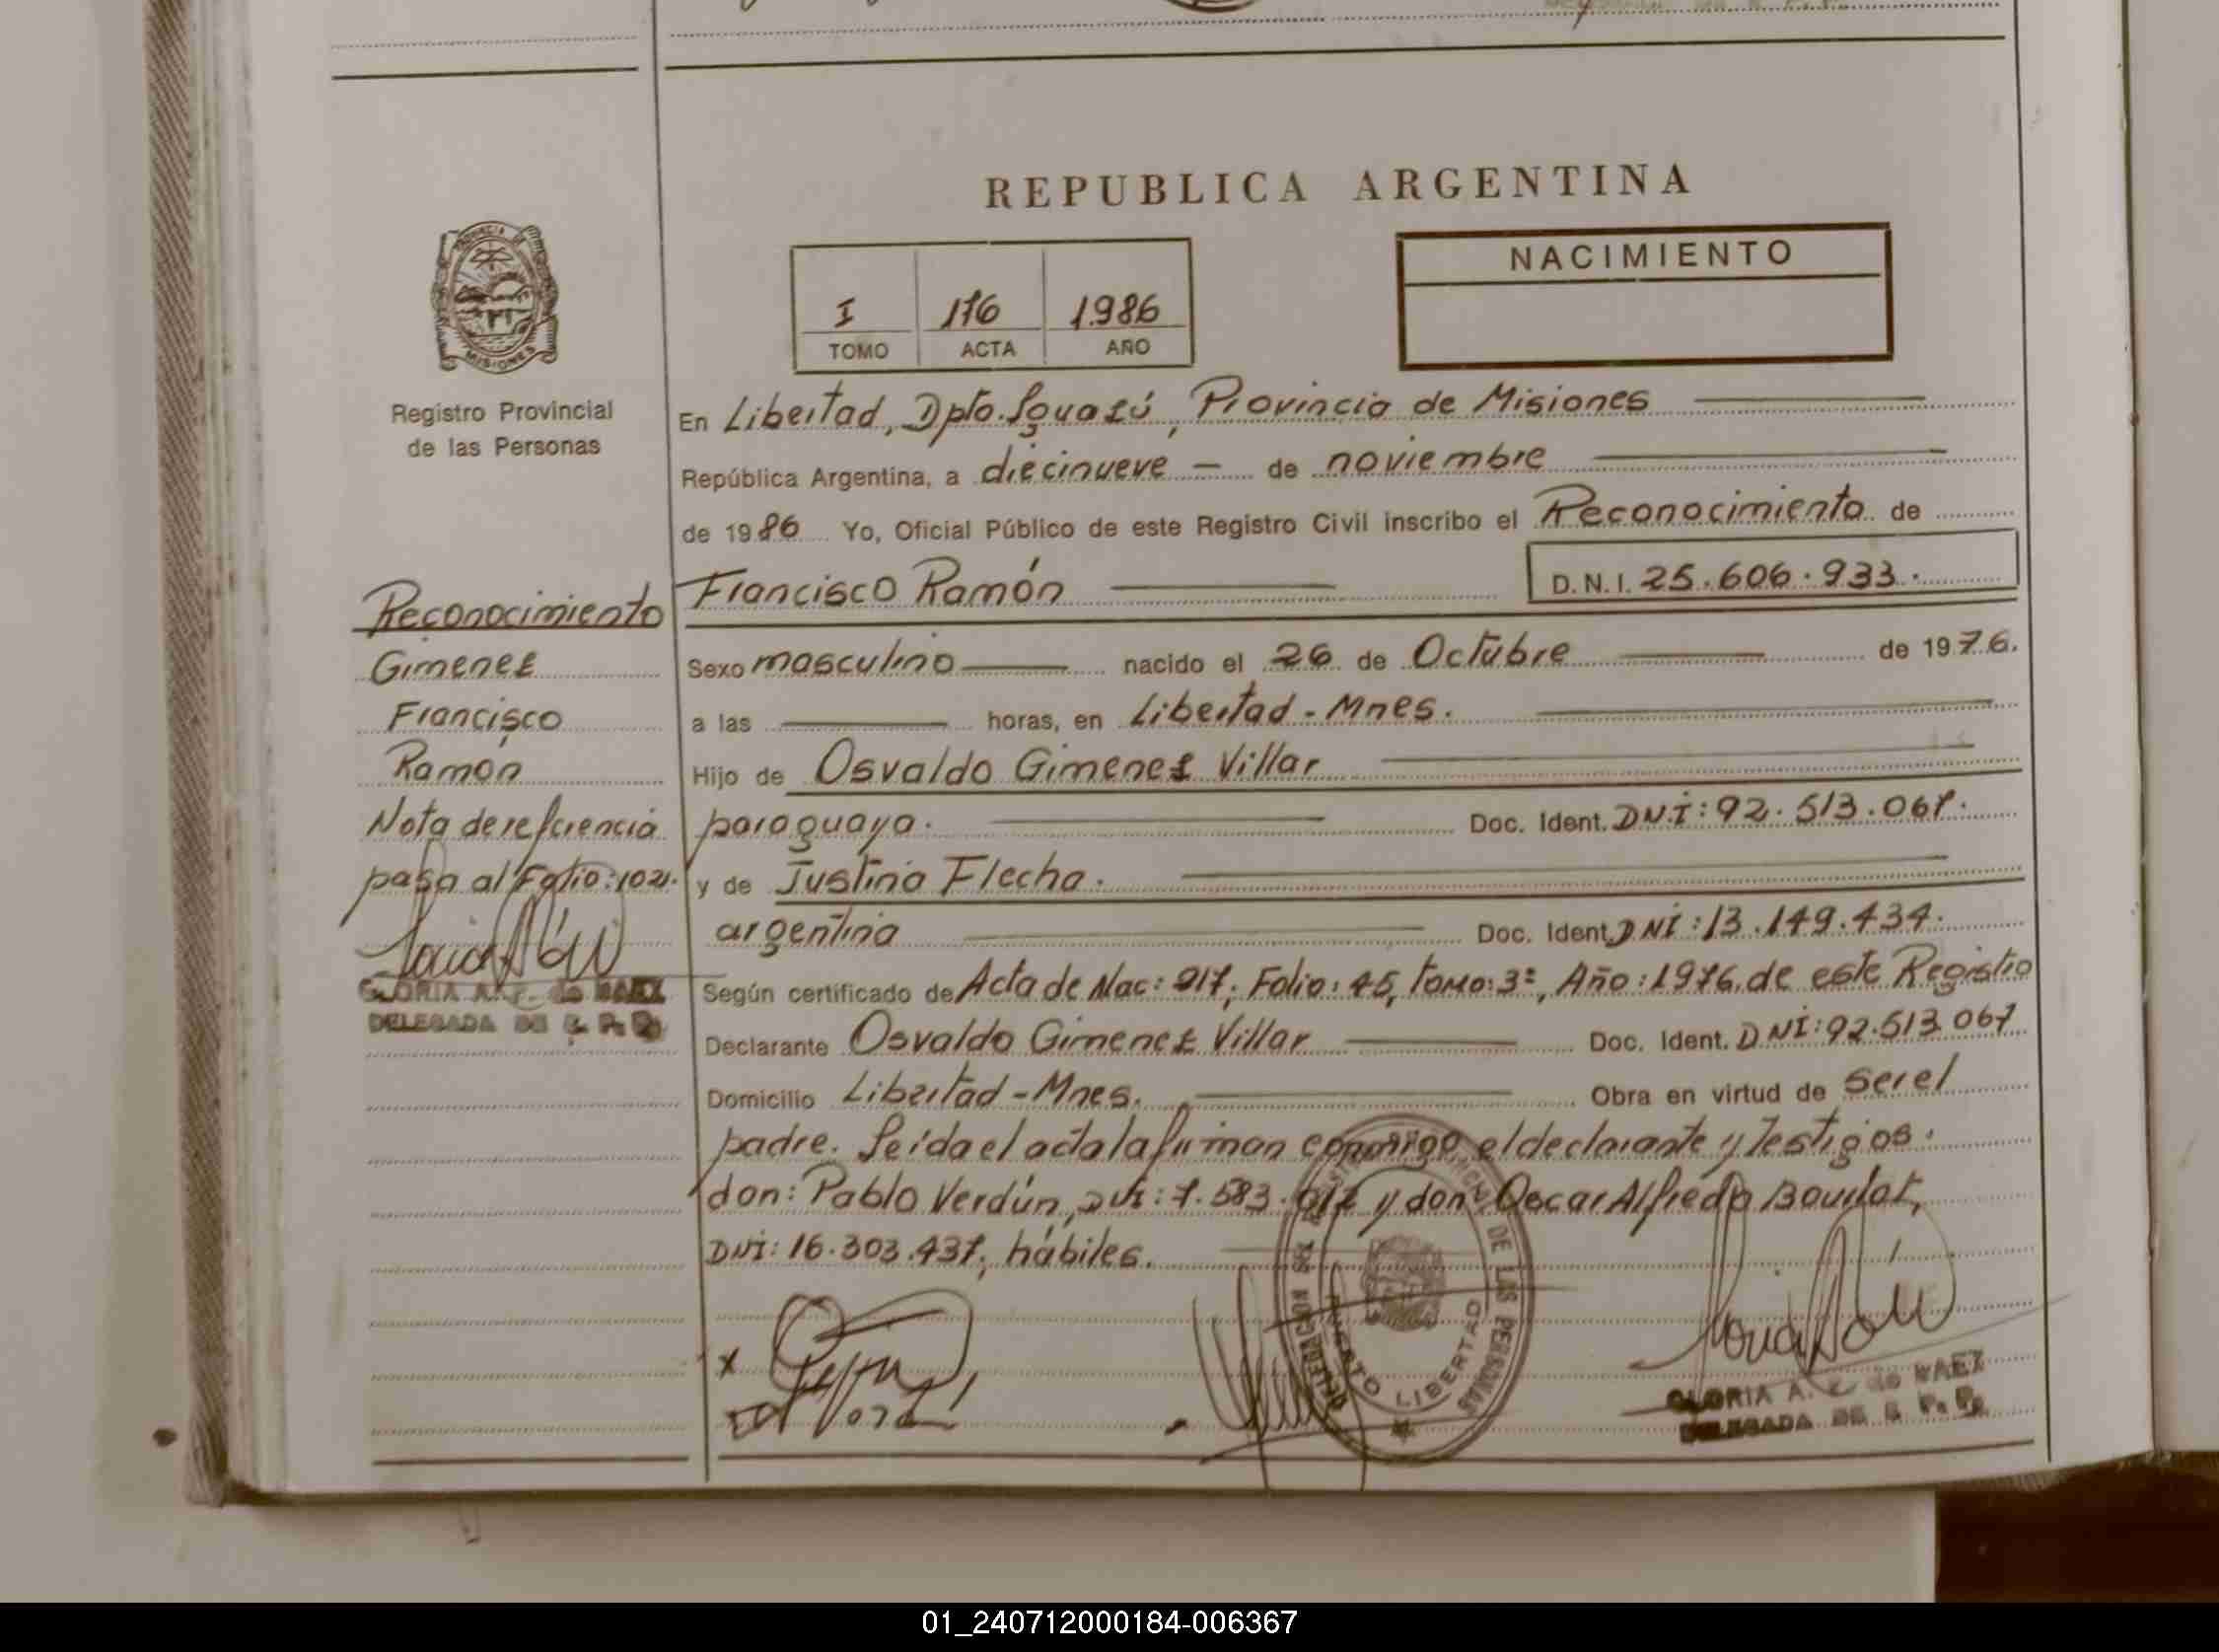 REPUBLICA ARGENTINA
NACIMIENTO
I 176 1986
TOMO ACTA AÑO
PROVINCIA DE MISIONES
Registro Provincial
de las Personas
En Libertad, Dpto. Iguazú, Provincia de Misiones
República Argentina, a diecinueve - de noviembre
de 1986 Yo, Oficial Público de este Registro Civil inscribo el Reconocimiento de
Francisco Ramón D.N.I. 25.606.933.
Sexo masculino nacido el 26 de Octubre de 1976.
a las horas, en Libertad - Mnes.
Hijo de Osvaldo Gimenez Villar
paraguaya. Doc. Ident. DNI: 92.513.067.
y de Justina Flecha.
argentina Doc. Ident. DNI: 13.149.434.
Según certificado de Acta de Nac: 917, Folio: 45, Tomo: 3º, Año: 1976, de este Registro
Declarante Osvaldo Gimenez Villar Doc. Ident. DNI: 92.513.067
Domicilio Libertad - Mnes. Obra en virtud de ser el
padre. Leída el acta la firman conmigo el declarante y testigos:
don: Pablo Verdún, DNI: 7.583. y don Oscar Alfredo
DNI: 16.303.437, hábiles.
Reconocimiento
Gimenez
Francisco
Ramón
Nota de referencia
pasa al Folio: 102.
GLORIA A. de BAEZ
DELEGADA DE R. P. P.
DELEGACION DE LAS PERSONAS
PUERTO LIBERTAD
GLORIA A. de BAEZ
DELEGADA DE R. P. P.
01_240712000184-006367